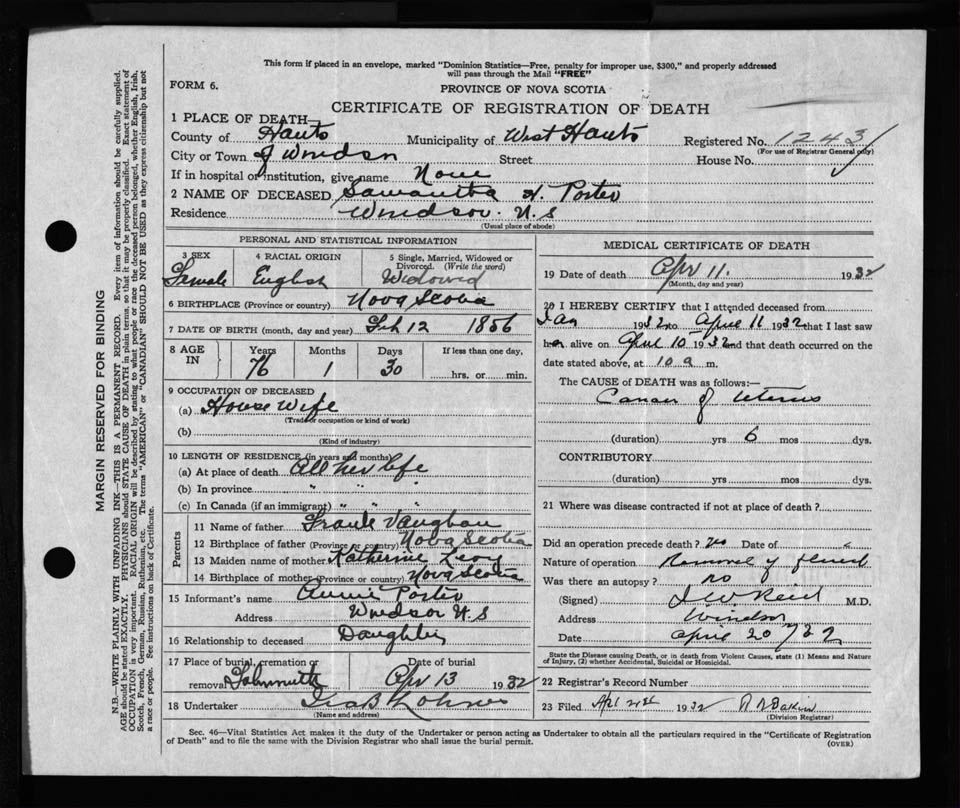 This form if placed in an envelope, marked "Dominion Statistics—Free, penalty for improper use, $300," and properly addressed
will pass through the Mail "FREE"
FORM 6.
PROVINCE OF NOVA SCOTIA
CERTIFICATE OF REGISTRATION OF DEATH
1 PLACE OF DEATH—
County of Hants Municipality of West Hants Registered No. 1243
(For use of Registrar General only)
City or Town of Windsor Street House No.
If in hospital or institution, give name None
2 NAME OF DECEASED Samantha H. Porter
Residence Windsor. N.S
(Usual place of abode)
PERSONAL AND STATISTICAL INFORMATION
3 SEX 4 RACIAL ORIGIN 5 Single, Married, Widowed or Divorced. (Write the word)
Female English Widowed
6 BIRTHPLACE (Province or country) Nova Scotia
7 DATE OF BIRTH (month, day and year) Feb 12 1856
8 AGE IN Years Months Days If less than one day,
76 1 30 hrs. or min.
9 OCCUPATION OF DECEASED
(a) House Wife
(Trade or occupation or kind of work)
(b)
(Kind of industry)
10 LENGTH OF RESIDENCE (in years and months)
(a) At place of death All her life
(b) In province " " "
(c) In Canada (if an immigrant) " " "
Parents
11 Name of father Frank Vaughan
12 Birthplace of father (Province or country) Nova Scotia
13 Maiden name of mother Katherine
14 Birthplace of mother (Province or country) Nova Scotia
15 Informant's name Annie Porter
Address Windsor N.S
16 Relationship to deceased Daughter
17 Place of burial, cremation or removal Date of burial
Falmouth Apr 13 1932
18 Undertaker Geo B Lohnes
(Name and address)
MEDICAL CERTIFICATE OF DEATH
19 Date of death Apr 11. 1932
(Month, day and year)
20 I HEREBY CERTIFY that I attended deceased from
Jan 1932 to April 11 1932 that I last saw
her alive on April 10 1932 and that death occurred on the
date stated above, at 10 a m.
The CAUSE OF DEATH was as follows:—
Cancer of Uterus
(duration) yrs 6 mos dys.
CONTRIBUTORY
(duration) yrs mos dys.
21 Where was disease contracted if not at place of death?
Did an operation precede death? Date of
Nature of operation Removal of fluid
Was there an autopsy? no
(Signed) J W Reid M.D.
Address Windsor
Date April 20/32
State the Disease causing Death, or in death from Violent Causes, state (1) Means and Nature
of Injury, (2) whether Accidental, Suicidal or Homicidal.
22 Registrar's Record Number
23 Filed Apl 21st 1932
(Division Registrar)
Sec. 46—Vital Statistics Act makes it the duty of the Undertaker or person acting as Undertaker to obtain all the particulars required in the "Certificate of Registration
of Death" and to file the same with the Division Registrar who shall issue the burial permit.
(OVER)
MARGIN RESERVED FOR BINDING
N.B.—WRITE PLAINLY WITH UNFADING INK—THIS IS A PERMANENT RECORD. Every item of information should be carefully supplied.
AGE should be stated EXACTLY. PHYSICIANS should STATE CAUSE OF DEATH in plain terms, so that it may be properly classified. Exact statement of
OCCUPATION is very important. RACIAL ORIGIN will be described by stating to what people or race the deceased person belonged, whether English, Irish,
Scotch, French, German, Russian, Ruthenian, etc. The terms "AMERICAN" or "CANADIAN" SHOULD NOT BE USED as they express citizenship but not
a race or people. See instructions on back of Certificate.